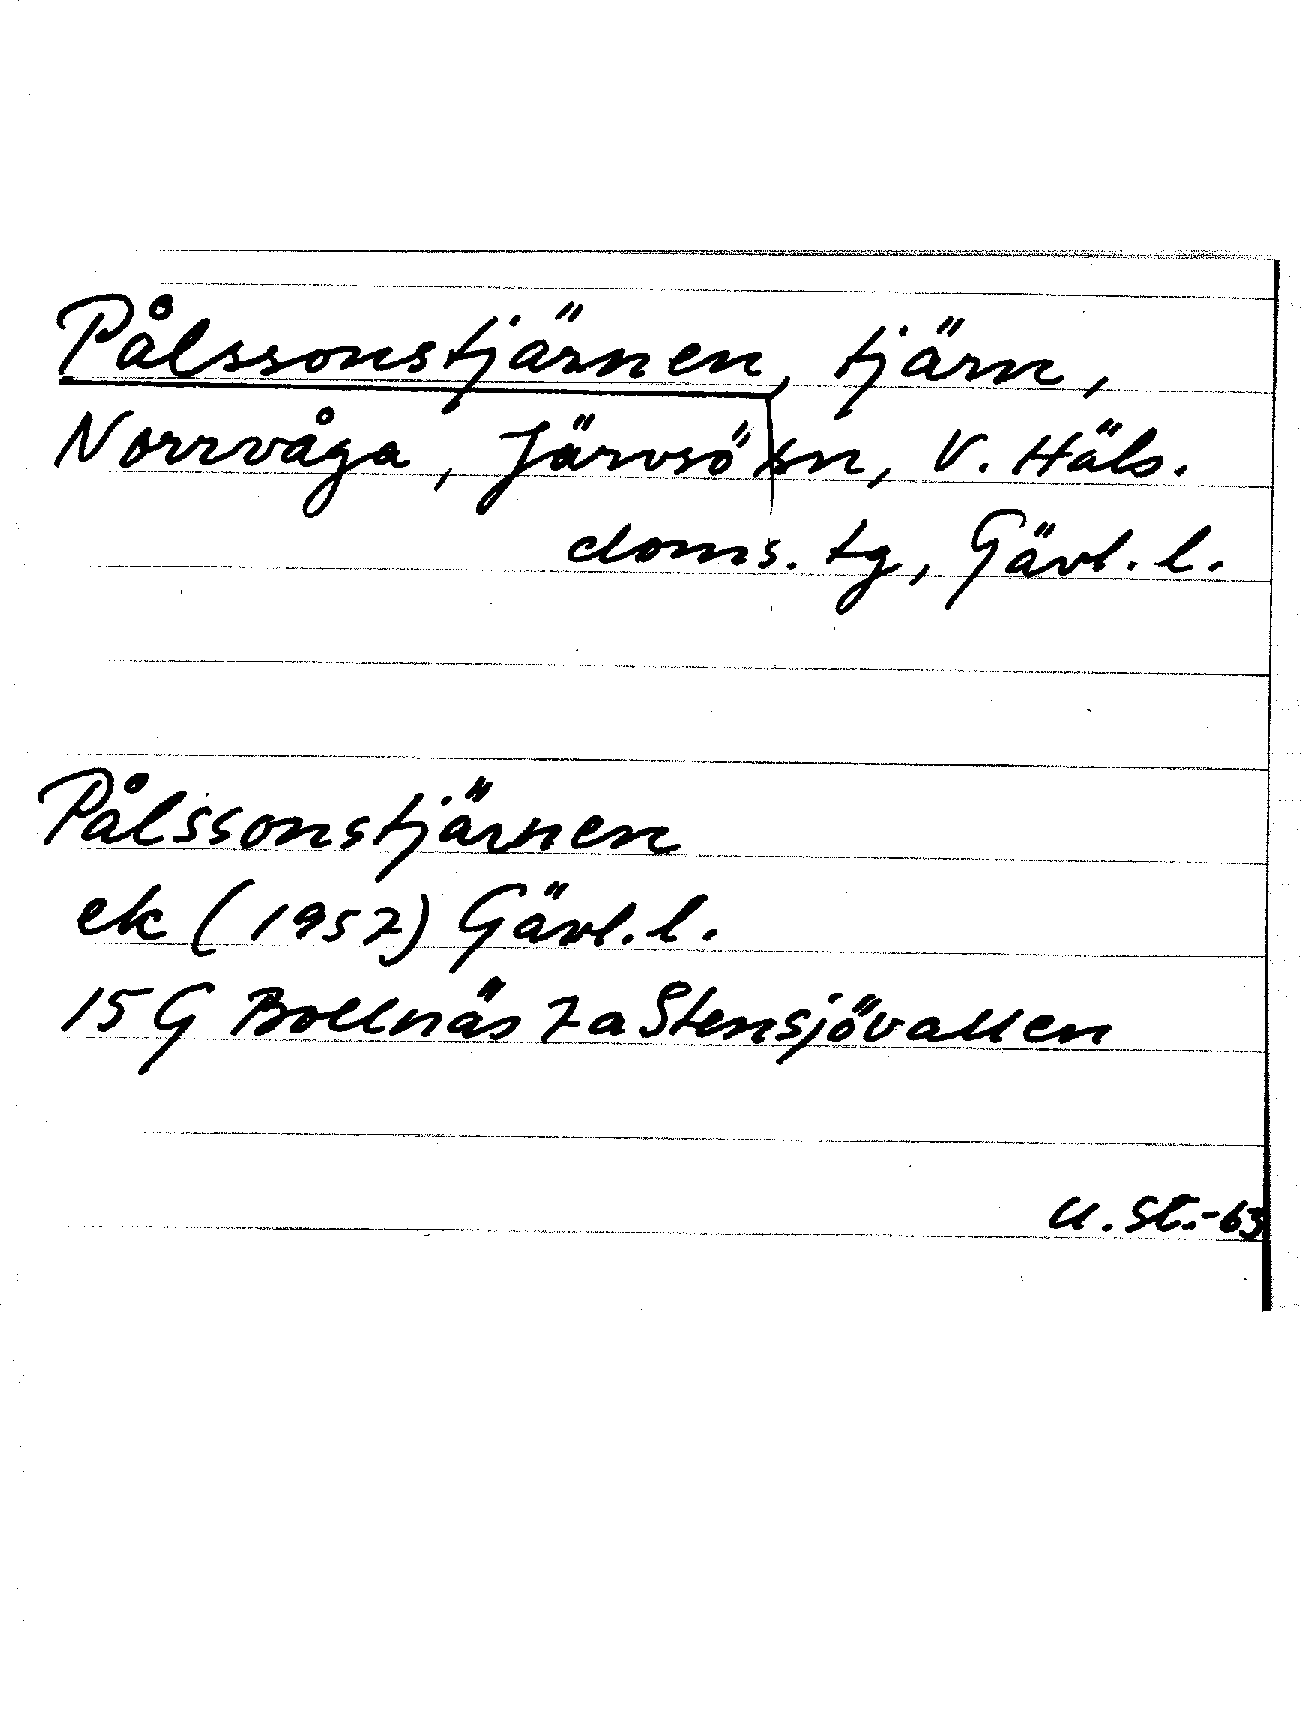 Pålssonstjärnen, tjärn,
Norrvåga, Järvsö sn, V. Häls.
doms. tg, Gävl. l.
Pålssonstjärnen
ek (1957) Gävl. l.
15 G Bollnäs 7a Stensjövallen
U. St.-63